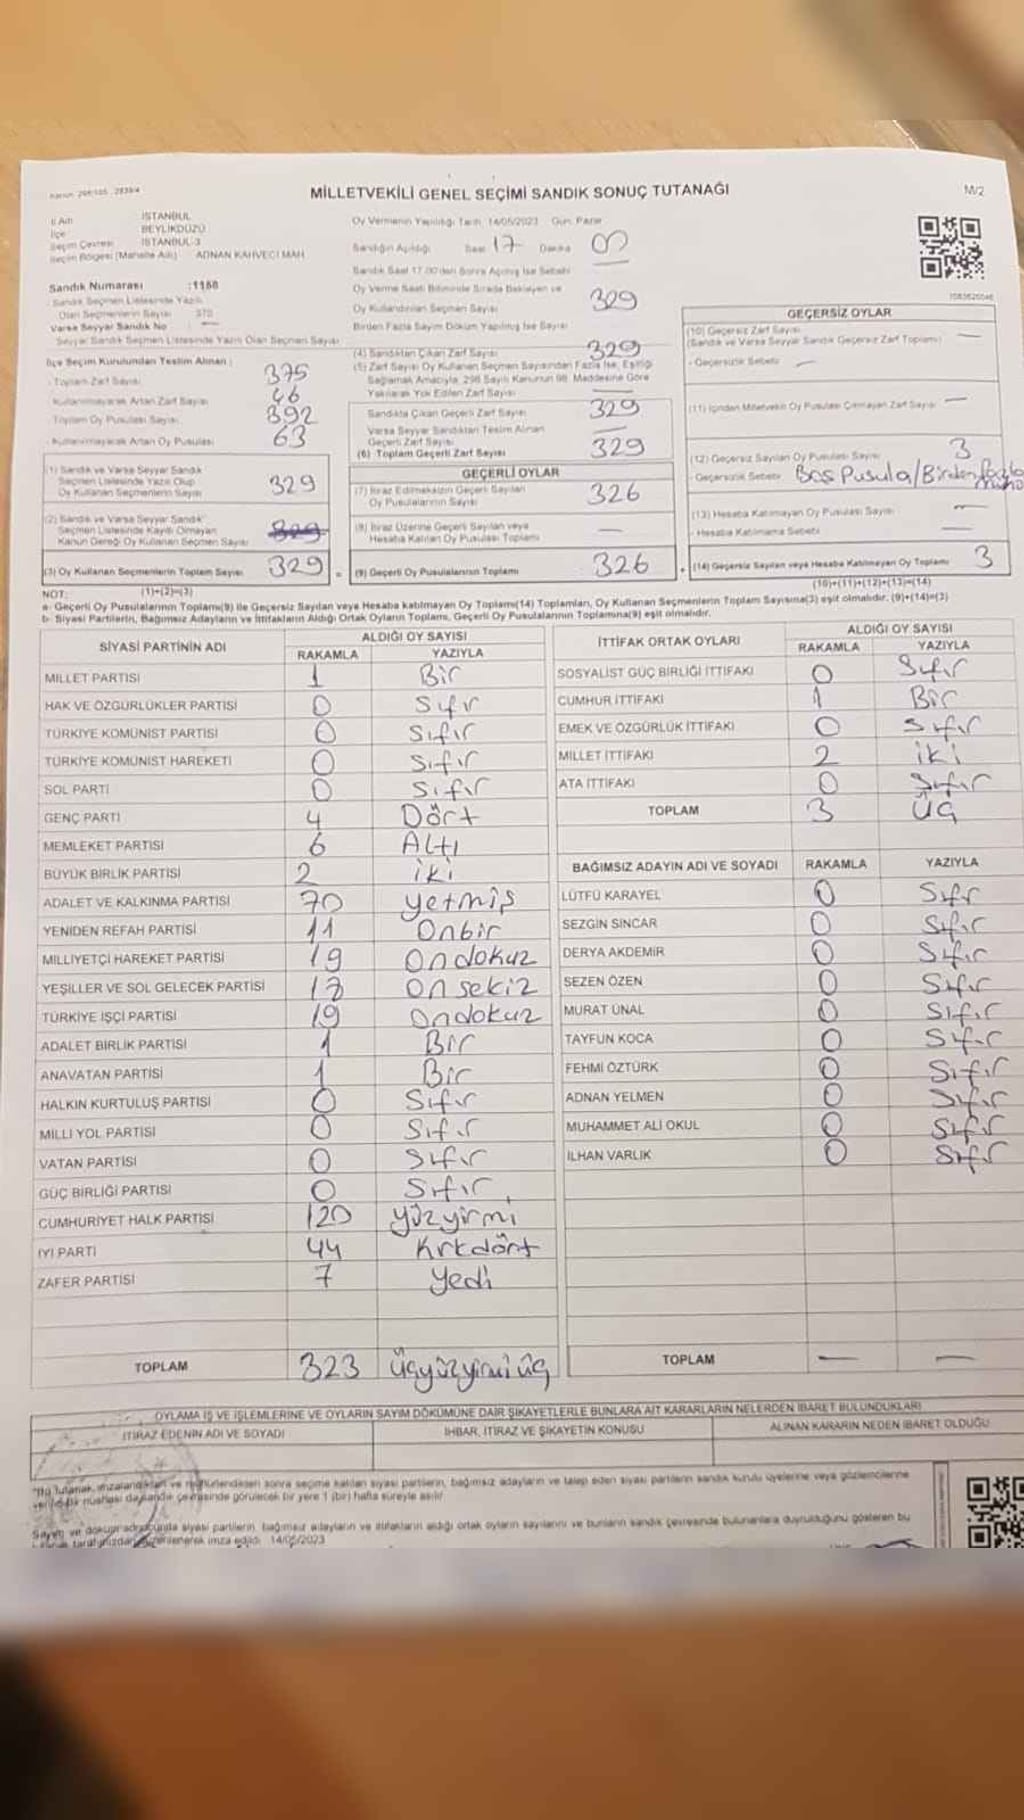 MİLLETVEKİLİ GENEL SEÇİMİ SANDIK SONUÇ TUTANAĞI
M/2
İl Adı İSTANBUL
İlçe BEYLİKDÜZÜ
Seçim Çevresi İSTANBUL-3
Seçim Bölgesi (Mahalle Adı) ADNAN KAHVECİ MAH
Oy Vermenin Yapıldığı Tarih 14/05/2023 Gün Pazar
Sandığın Açıldığı Saat 17 Dakika 00
Sandık Saat 17.00'den Sonra Açılmış İse Sebebi
Oy Verme Saati Bitiminde Sırada Bekleyen ve
Oy Kullandırılan Seçmen Sayısı 329
Birden Fazla Sayım Döküm Yapılmış İse Sayısı
Sandık Numarası :1158
Sandık Seçmen Listesinde Yazılı
Olan Seçmenlerin Sayısı 370
Varsa Seyyar Sandık No —
Seyyar Sandık Seçmen Listesinde Yazılı Olan Seçmen Sayısı
İlçe Seçim Kurulundan Teslim Alınan :
- Toplam Zarf Sayısı 375
- Kullanılmayarak Artan Zarf Sayısı 46
- Toplam Oy Pusulası Sayısı 392
- Kullanılmayarak Artan Oy Pusulası 63
(1) Sandık ve Varsa Seyyar Sandık
Seçmen Listesinde Yazılı Olup
Oy Kullanan Seçmenlerin Sayısı 329
(2) Sandık ve Varsa Seyyar Sandık
Seçmen Listesinde Kayıtlı Olmayan
Kanun Gereği Oy Kullanan Seçmen Sayısı
(3) Oy Kullanan Seçmenlerin Toplam Sayısı 329
(1)+(2)=(3)
(4) Sandıktan Çıkan Zarf Sayısı 329
(5) Zarf Sayısı Oy Kullanan Seçmen Sayısından Fazla İse, Eşitliği
Sağlamak Amacıyla, 298 Sayılı Kanunun 98. Maddesine Göre
Yakılarak Yok Edilen Zarf Sayısı —
Sandıkta Çıkan Geçerli Zarf Sayısı 329
Varsa Seyyar Sandıktan Teslim Alınan
Geçerli Zarf Sayısı —
(6) Toplam Geçerli Zarf Sayısı 329
GEÇERLİ OYLAR
(7) İtiraz Edilmeksizin Geçerli Sayılan
Oy Pusulalarının Sayısı 326
(8) İtiraz Üzerine Geçerli Sayılan veya
Hesaba Katılan Oy Pusulası Toplamı —
(9) Geçerli Oy Pusulalarının Toplamı 326
GEÇERSİZ OYLAR
(10) Geçersiz Zarf Sayısı
(Sandık ve Varsa Seyyar Sandık Geçersiz Zarf Toplamı) —
- Geçersizlik Sebebi —
(11) İçinden Milletvekili Oy Pusulası Çıkmayan Zarf Sayısı —
(12) Geçersiz Sayılan Oy Pusulası Sayısı 3
- Geçersizlik Sebebi Boş Pusula/Birden fazla
(13) Hesaba Katılmayan Oy Pusulası Sayısı —
- Hesaba Katılmama Sebebi —
(14) Geçersiz Sayılan veya Hesaba Katılmayan Oy Toplamı 3
(10)+(11)+(12)+(13)=(14)
NOT:
a- Geçerli Oy Pusulalarının Toplamı(9) ile Geçersiz Sayılan veya Hesaba katılmayan Oy Toplamı(14) Toplamları, Oy Kullanan Seçmenlerin Toplam Sayısına(3) eşit olmalıdır. (9)+(14)=(3)
b- Siyasi Partilerin, Bağımsız Adayların ve İttifakların Aldığı Ortak Oyların Toplamı, Geçerli Oy Pusulalarının Toplamına(9) eşit olmalıdır.
SİYASİ PARTİNİN ADI ALDIĞI OY SAYISI
RAKAMLA YAZIYLA
MİLLET PARTİSİ 1 Bir
HAK VE ÖZGÜRLÜKLER PARTİSİ 0 Sıfır
TÜRKİYE KOMÜNİST PARTİSİ 0 Sıfır
TÜRKİYE KOMÜNİST HAREKETİ 0 Sıfır
SOL PARTİ 0 Sıfır
GENÇ PARTİ 4 Dört
MEMLEKET PARTİSİ 6 Altı
BÜYÜK BİRLİK PARTİSİ 2 iki
ADALET VE KALKINMA PARTİSİ 70 yetmiş
YENİDEN REFAH PARTİSİ 11 Onbir
MİLLİYETÇİ HAREKET PARTİSİ 19 Ondokuz
YEŞİLLER VE SOL GELECEK PARTİSİ 18 On sekiz
TÜRKİYE İŞÇİ PARTİSİ 19 Ondokuz
ADALET BİRLİK PARTİSİ 1 Bir
ANAVATAN PARTİSİ 1 Bir
HALKIN KURTULUŞ PARTİSİ 0 Sıfır
MİLLİ YOL PARTİSİ 0 Sıfır
VATAN PARTİSİ 0 Sıfır
GÜÇ BİRLİĞİ PARTİSİ 0 Sıfır
CUMHURİYET HALK PARTİSİ 120 Yüzyirmi
İYİ PARTİ 44 Kırkdört
ZAFER PARTİSİ 7 Yedi
TOPLAM 323 Üçyüzyirmi üç
İTTİFAK ORTAK OYLARI ALDIĞI OY SAYISI
RAKAMLA YAZIYLA
SOSYALİST GÜÇ BİRLİĞİ İTTİFAKI 0 Sıfır
CUMHUR İTTİFAKI 1 Bir
EMEK VE ÖZGÜRLÜK İTTİFAKI 0 Sıfır
MİLLET İTTİFAKI 2 iki
ATA İTTİFAKI 0 Sıfır
TOPLAM 3 Üç
BAĞIMSIZ ADAYIN ADI VE SOYADI RAKAMLA YAZIYLA
LÜTFÜ KARAYEL 0 Sıfır
SEZGİN SİNCAR 0 Sıfır
DERYA AKDEMİR 0 Sıfır
SEZEN ÖZEN 0 Sıfır
MURAT ÜNAL 0 Sıfır
TAYFUN KOCA 0 Sıfır
FEHMİ ÖZTÜRK 0 Sıfır
ADNAN YELMEN 0 Sıfır
MUHAMMET ALİ OKUL 0 Sıfır
İLHAN VARLIK 0 Sıfır
TOPLAM — —
OYLAMA İŞ VE İŞLEMLERİNE VE OYLARIN SAYIM DÖKÜMÜNE DAİR ŞİKAYETLERLE BUNLARA AİT KARARLARIN NELERDEN İBARET BULUNDUKLARI
İTİRAZ EDENİN ADI VE SOYADI İHBAR, İTİRAZ VE ŞİKAYETİN KONUSU ALINAN KARARIN NEDEN İBARET OLDUĞU
"Bu tutanak, imzalandıktan ve mühürlendikten sonra seçime katılan siyasi partilerin, bağımsız adayların ve talep eden siyasi partilerin sandık kurulu üyelerine veya gözlemcilerine
verilir. Bir nüshası da sandık çevresinde görülecek bir yere 1 (bir) hafta süreyle asılır
Sayım ve döküm ardında siyasi partilerin, bağımsız adayların ve ittifakların aldığı ortak oyların sayılarını ve bunların sandık çevresinde bulunanlara duyrulduğunu gösteren bu
imza edildi. 14/05/2023